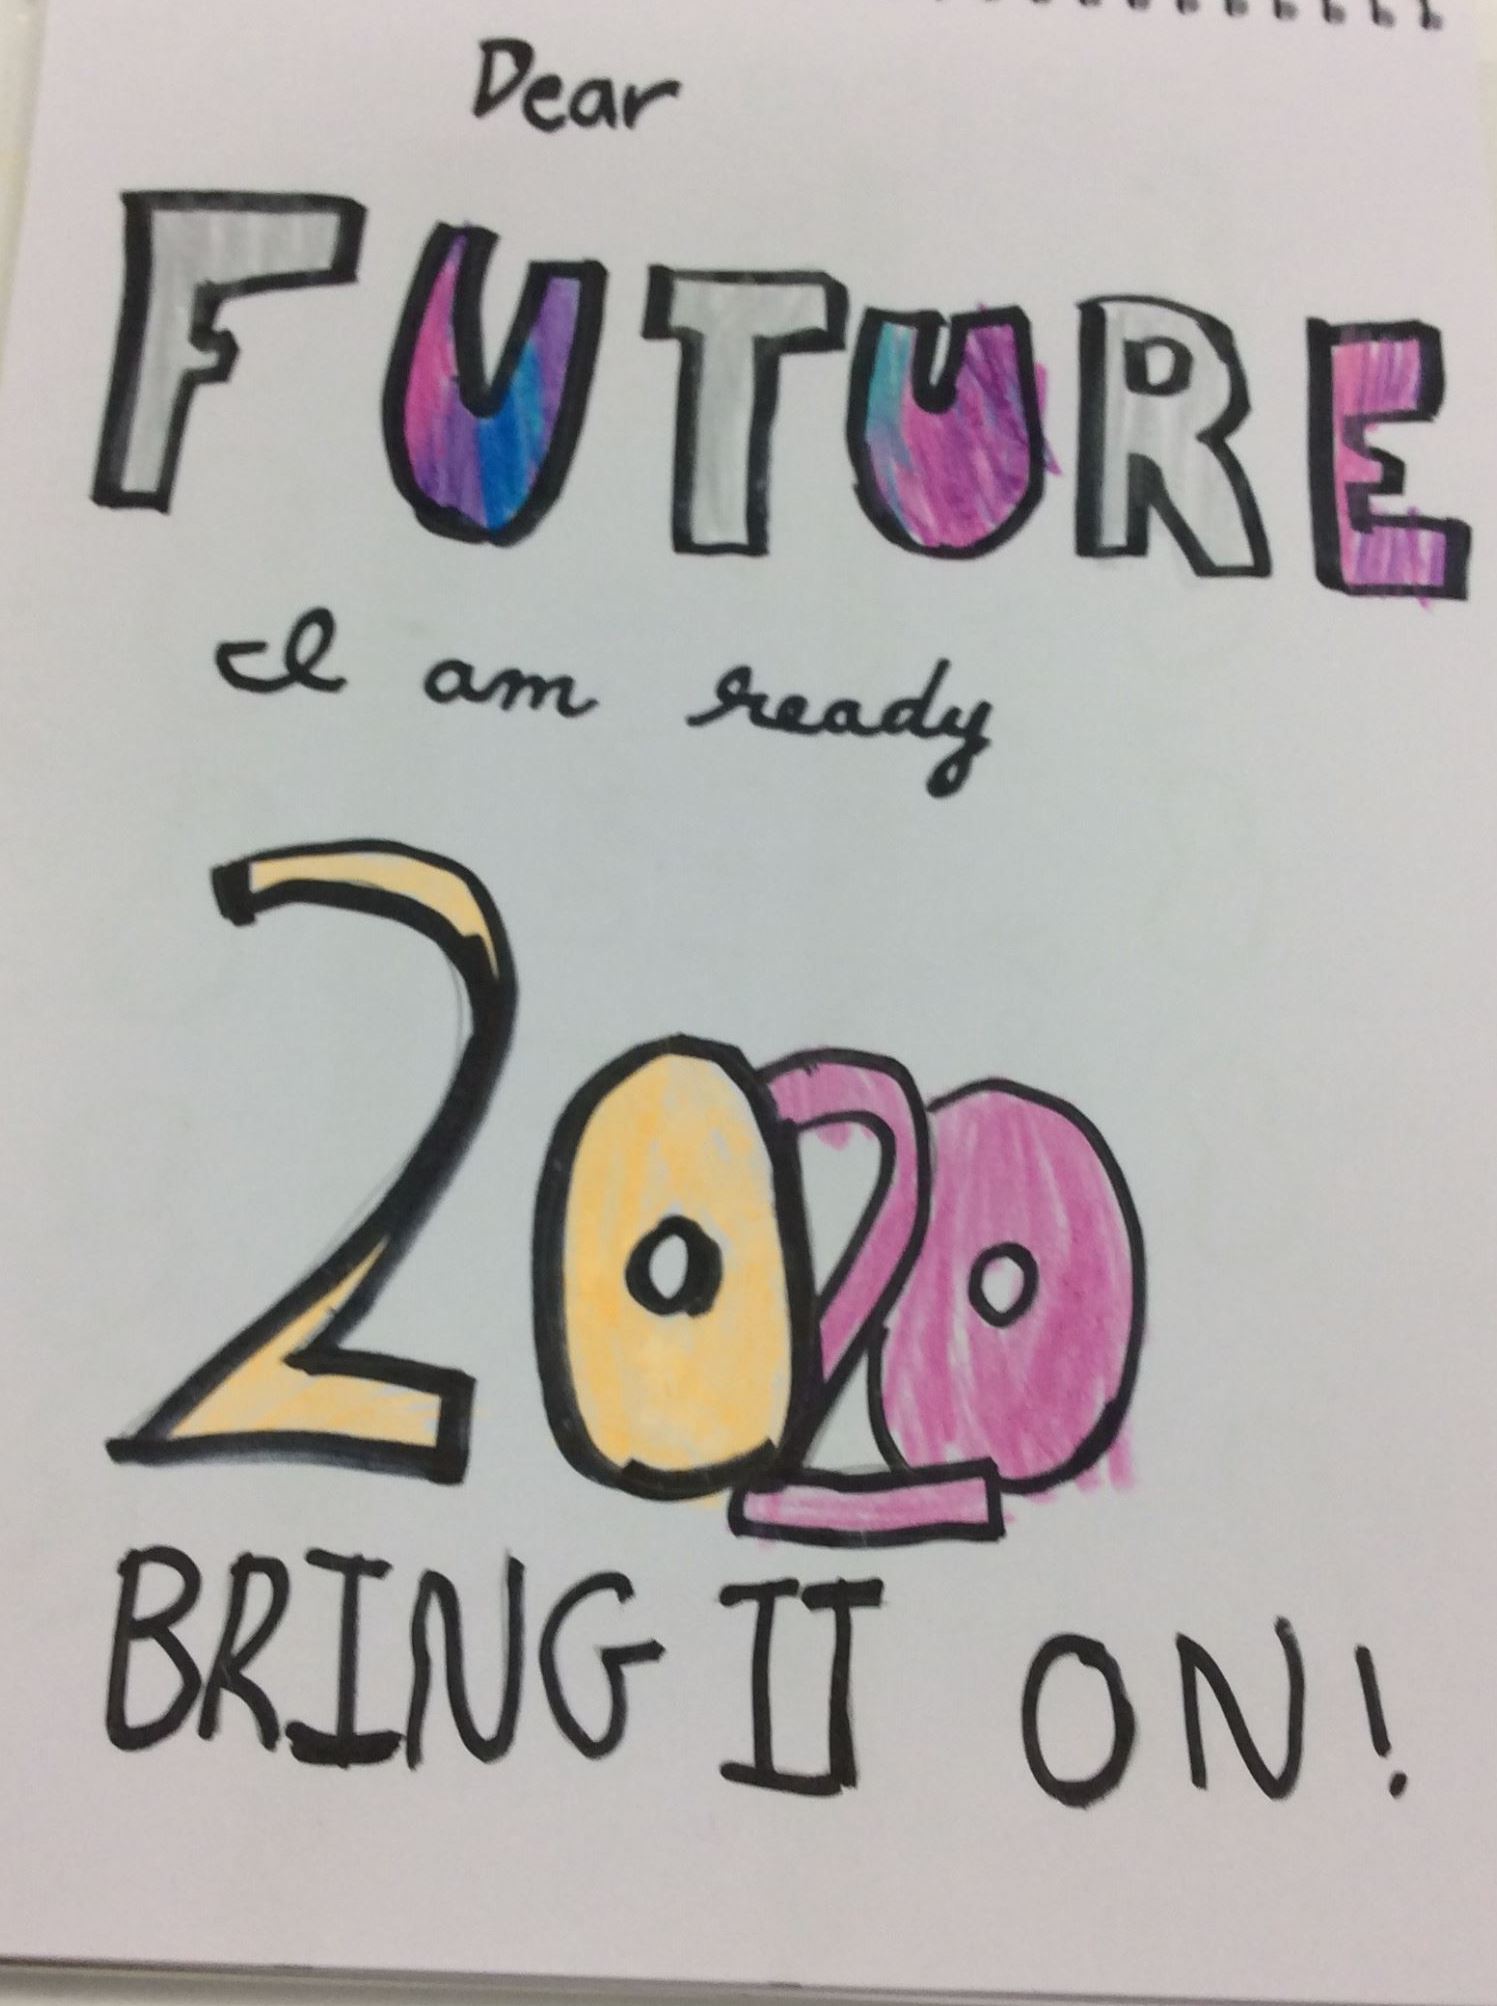 Dear
FUTURE
I am ready
2020
BRING IT ON!